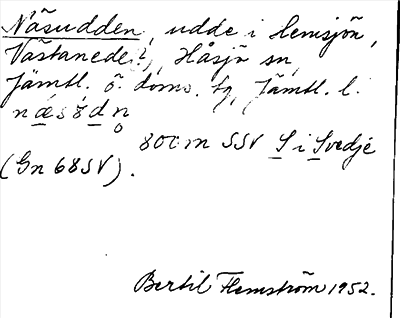 Näsudden, udde i Hemsjön,
Västanede?, Håsjö sn,
Jämtl. ö. doms. tg, Jämtl. l.
næsɛdn̥
800 m SSV S i Svedje
(Gn 68SV).
Bertil Flemström 1952.